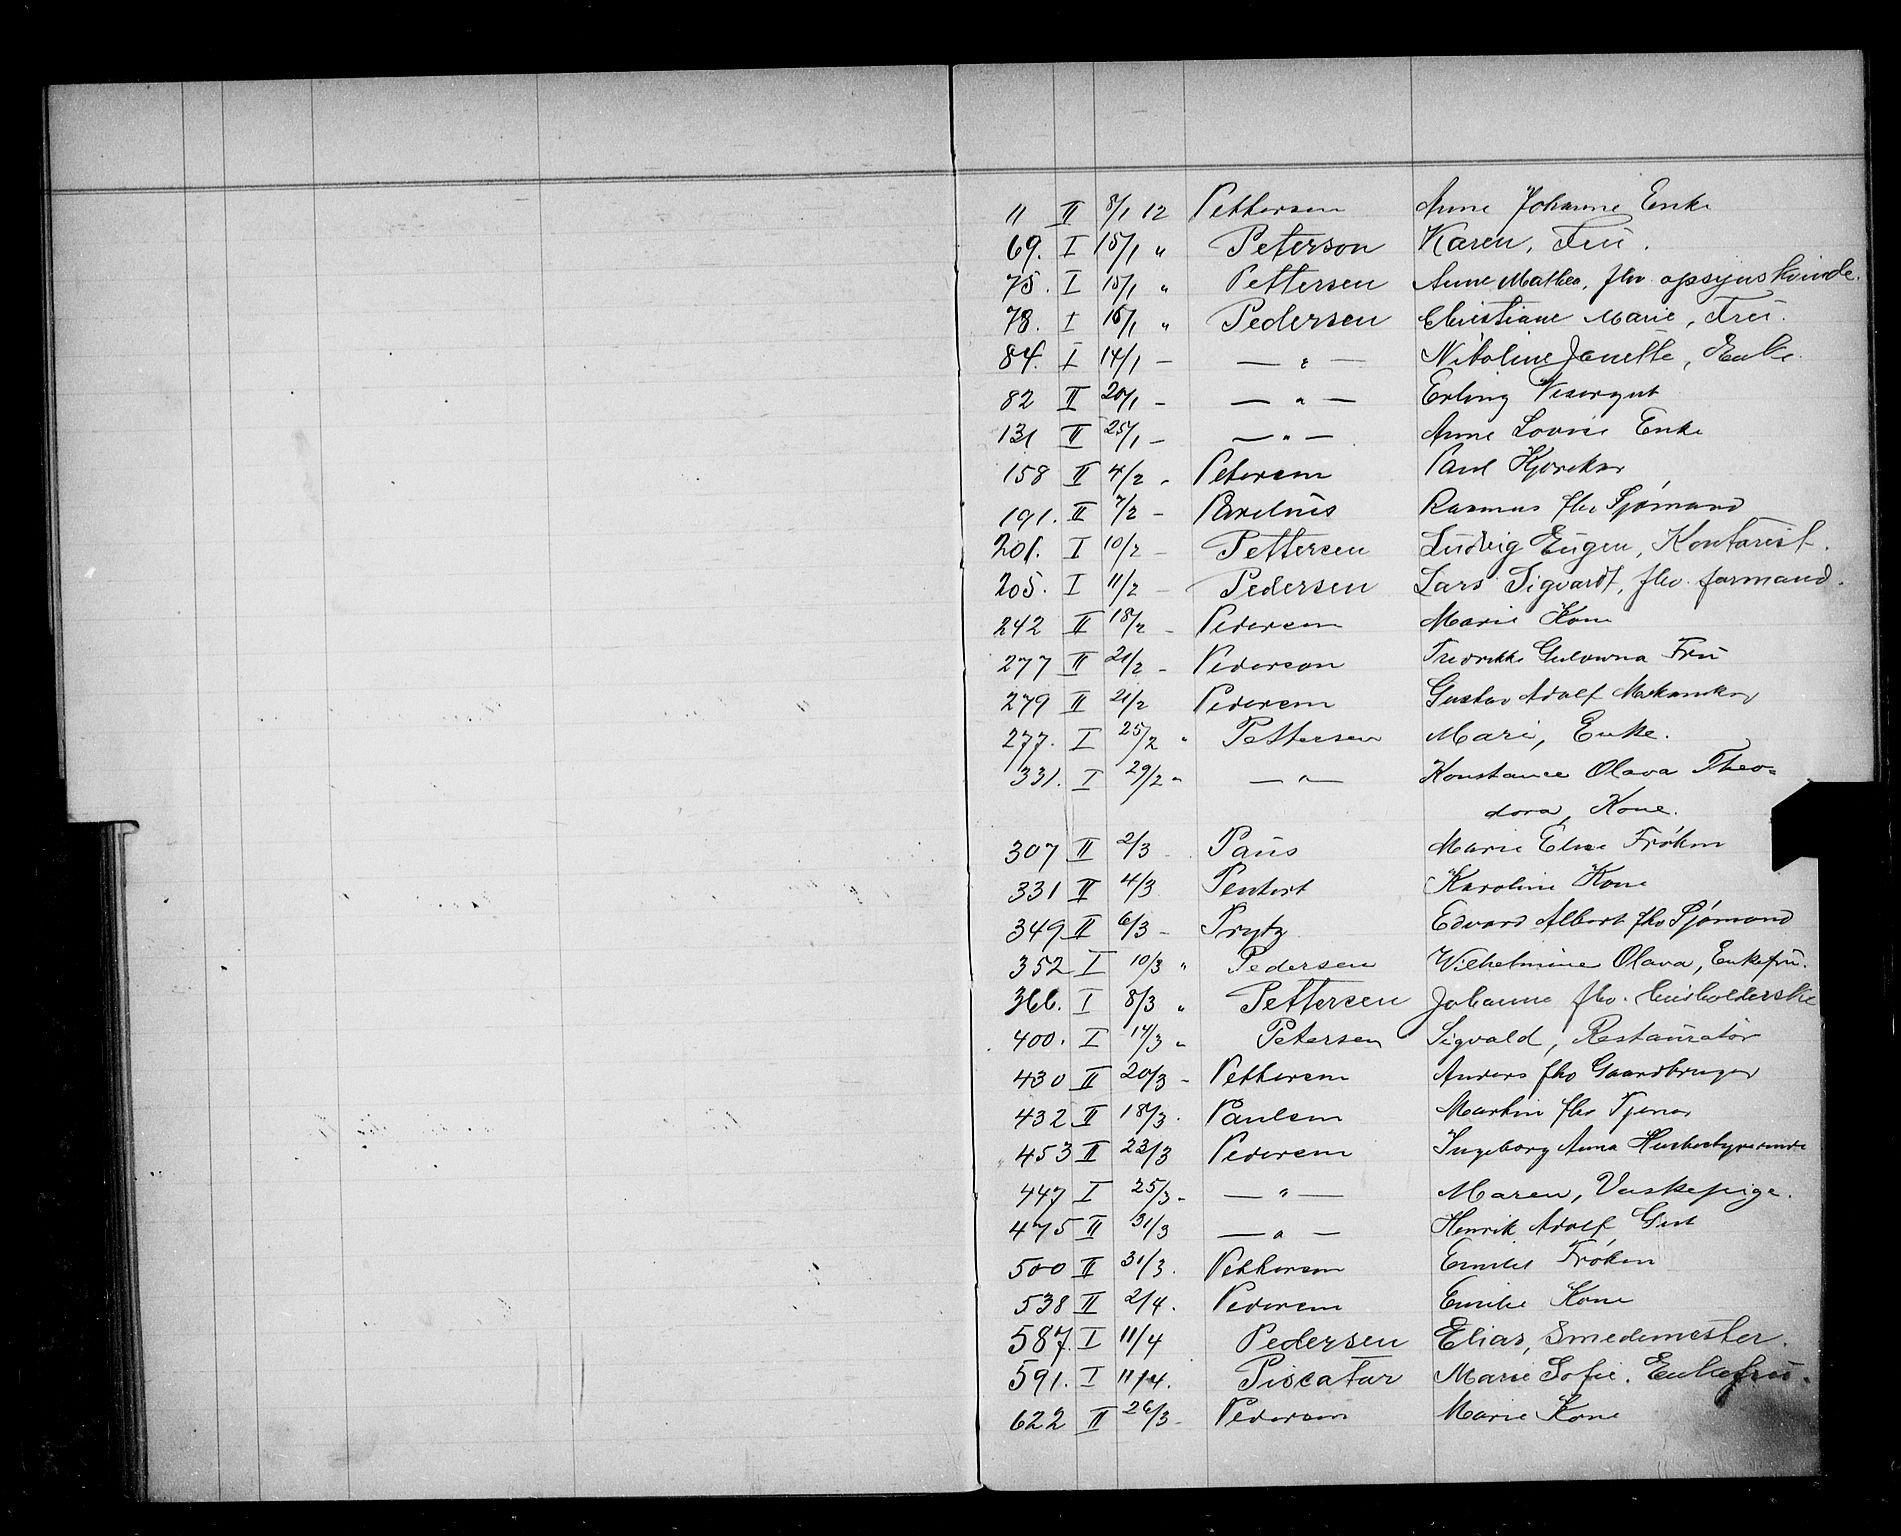 11 II 8/1 12 Pettersen Anne Johanne Enke
69. I 15/1 " Peterson Karen, Fru.
75. I 15/1 " Pettersen Anne Mathea, fhv opsynskvinde.
78. I 16/1 " Pedersen Christiane Marie, Fru.
84. I 14/1 — — " — Nikoline Janette, Enke.
82 II 20/1 — — " — Erling Visergut
131 II 25/1 — — " — Anne Lovise Enke
158 II 4/2 - Petersen Paul
191. II 7/2 - Rasmus fhv Sjømand
201. I 10/2 — Pettersen Ludvig Eugen, Kontorist.
205. I 11/2 — Pedersen Lars Sigvardt, fhv. formand.
242 II 18/2 - Pedersen Marie Kone
277 II 21/2 - Pedersen Fredrikke Fru
279 II 21/2 Pedersen Gustav Adolf Mekaniker
277. I 25/2 " Pettersen Mari, Enke.
331. I 29/2 " — " — Konstance Olava Theo-
dora, Kone.
307 II 2/3 Paus Marie Elise Frøken
331 II 4/3 Karoline Kone
349 II 6/3 - Prytz Edvard Albert fhv Sjømand
352 I 10/3 " Pedersen Wilhelmine Olava, Enkefru.
366. I 8/3 " Pettersen Johanne fhv. husholderske
400. I 14/3 " Petersen Sigvald, Restauratør
430 II 20/3 - Pettersen Anders fhv Gaardbruger
432 II 18/3. Paulsen Martin fhv Tjener
453 II 23/3 Pedersen Ingeborg Anna Husbestyrerinde
447 I 25/3 - — " — Maren, Vaskepige.
475 II 31/3 — " — Henrik Adolf Gut
500 II 31/3. Pettersen Emilie Frøken
538 II 2/4. Pedersen Emilie Kone
587. I 11/4 Pedersen Elias, Smedemester.
591. I 11/4. Piscator Marie Sofie. Enkefru.
622 II 26/3 - Pedersen Marie Kone